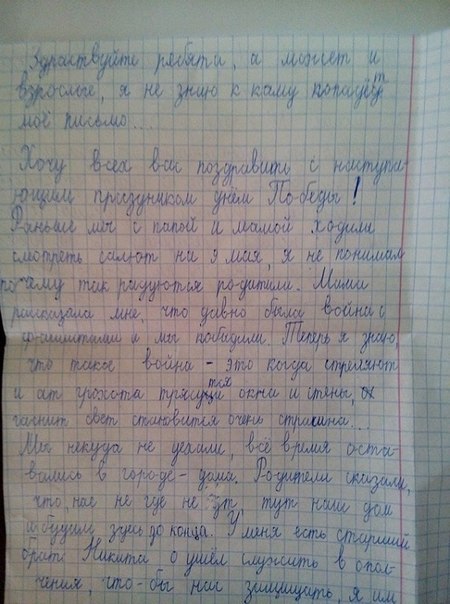 Здраствуйте ребята, а может и
взрослые, я не знаю к каму попадёт
моё письмо...
Хочу всех вас поздравить с наступа-
ющим праздником днём По-беды!
Раньше мы с папой и мамой ходили
смотреть салют на 9 мая, я не понимал
почему так радуются родители. Мама
рассказала мне, что давно была война с
фашистами и мы победили. Теперь я знаю,
что такое война - это когда стреляют
и от грохота трясутся окна и стены,
гаснит свет становится очень страшна...
Мы некуда не уехали, всё время оста-
вались в городе - дома. Родители сказали,
что, нас не где не тут наш дом
и будим здесь до конца. У меня есть старший
брат Никита о ушёл служить в опол-
чения, что-бы нас зищищать, я им